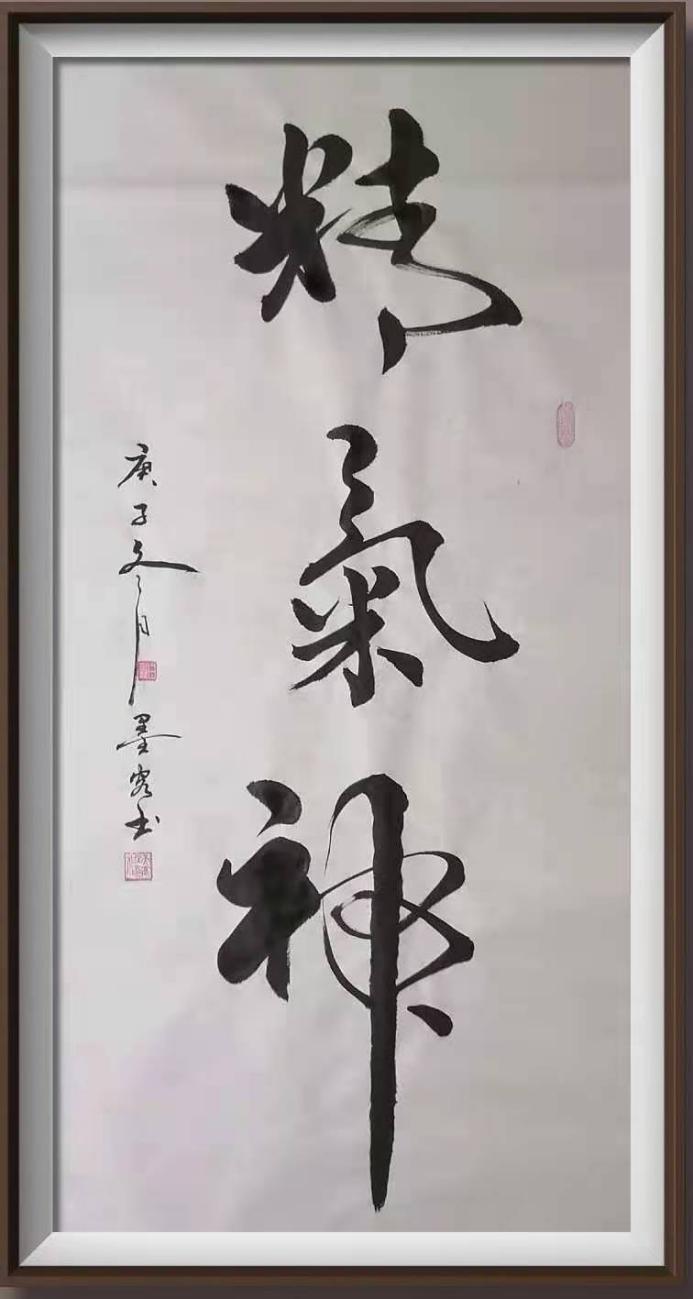 精氣神
庚子冬月墨客书